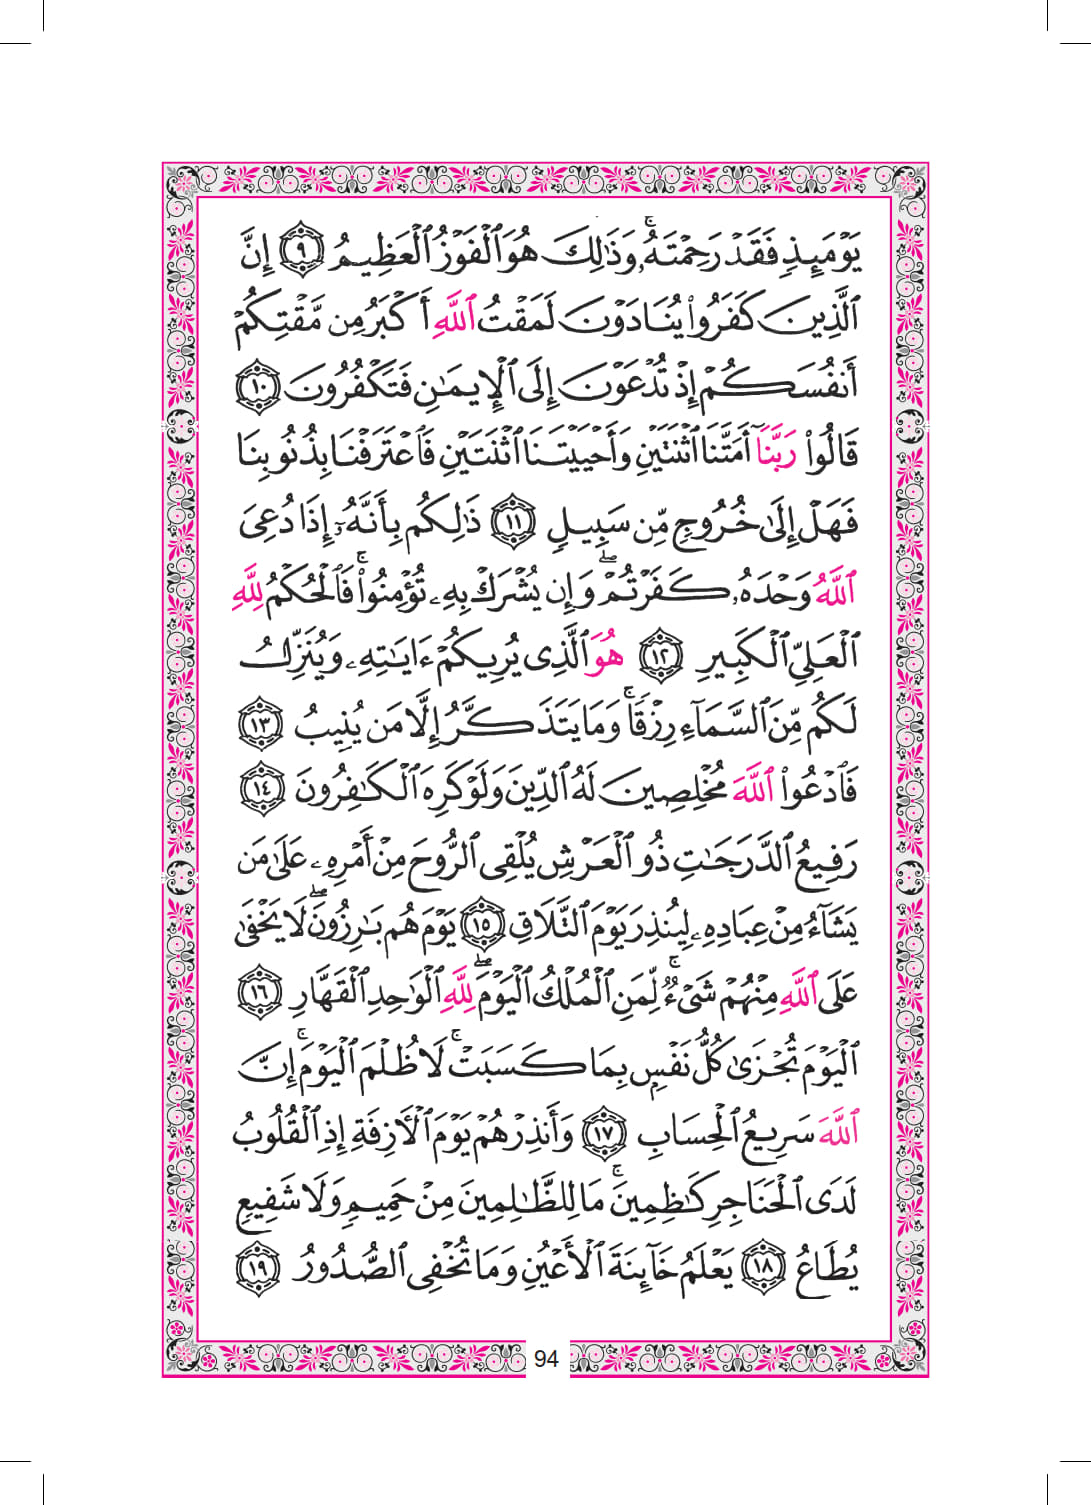 يَوْمَئِذٍ فَقَدْ رَحِمْتَهُۥۚ وَذَٰلِكَ هُوَ ٱلْفَوْزُ ٱلْعَظِيمُ ٩ إِنَّ
ٱلَّذِينَ كَفَرُواْ يُنَادَوْنَ لَمَقْتُ ٱللَّهِ أَكْبَرُ مِن مَّقْتِكُمْ
أَنفُسَكُمْ إِذْ تُدْعَوْنَ إِلَى ٱلْإِيمَٰنِ فَتَكْفُرُونَ ١٠
قَالُواْ رَبَّنَآ أَمَتَّنَا ٱثْنَتَيْنِ وَأَحْيَيْتَنَا ٱثْنَتَيْنِ فَٱعْتَرَفْنَا بِذُنُوبِنَا
فَهَلْ إِلَىٰ خُرُوجٍ مِّن سَبِيلٍ ١١ ذَٰلِكُم بِأَنَّهُۥٓ إِذَا دُعِىَ
ٱللَّهُ وَحْدَهُۥ كَفَرْتُمْۖ وَإِن يُشْرَكْ بِهِۦ تُؤْمِنُواْۚ فَٱلْحُكْمُ لِلَّهِ
ٱلْعَلِىِّ ٱلْكَبِيرِ ١٢ هُوَ ٱلَّذِى يُرِيكُمْ ءَايَٰتِهِۦ وَيُنَزِّلُ
لَكُم مِّنَ ٱلسَّمَآءِ رِزْقًاۚ وَمَا يَتَذَكَّرُ إِلَّا مَن يُنِيبُ ١٣
فَٱدْعُواْ ٱللَّهَ مُخْلِصِينَ لَهُ ٱلدِّينَ وَلَوْ كَرِهَ ٱلْكَٰفِرُونَ ١٤
رَفِيعُ ٱلدَّرَجَٰتِ ذُو ٱلْعَرْشِ يُلْقِى ٱلرُّوحَ مِنْ أَمْرِهِۦ عَلَىٰ مَن
يَشَآءُ مِنْ عِبَادِهِۦ لِيُنذِرَ يَوْمَ ٱلتَّلَاقِ ١٥ يَوْمَ هُم بَٰرِزُونَۖ لَا يَخْفَىٰ
عَلَى ٱللَّهِ مِنْهُمْ شَىْءٌۚ لِّمَنِ ٱلْمُلْكُ ٱلْيَوْمَۖ لِلَّهِ ٱلْوَٰحِدِ ٱلْقَهَّارِ ١٦
ٱلْيَوْمَ تُجْزَىٰ كُلُّ نَفْسٍۭ بِمَا كَسَبَتْۚ لَا ظُلْمَ ٱلْيَوْمَۚ إِنَّ
ٱللَّهَ سَرِيعُ ٱلْحِسَابِ ١٧ وَأَنذِرْهُمْ يَوْمَ ٱلْأَزِفَةِ إِذِ ٱلْقُلُوبُ
لَدَى ٱلْحَنَاجِرِ كَٰظِمِينَۚ مَا لِلظَّٰلِمِينَ مِنْ حَمِيمٍ وَلَا شَفِيعٍ
يُطَاعُ ١٨ يَعْلَمُ خَآئِنَةَ ٱلْأَعْيُنِ وَمَا تُخْفِى ٱلصُّدُورُ ١٩
94